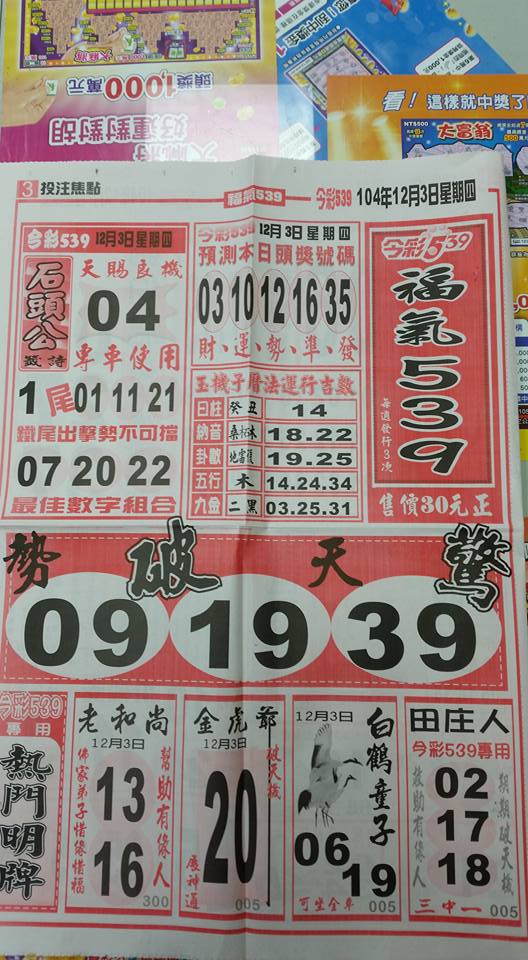 頭獎1,000萬元
好運對對胡
看！這樣就中獎了
NT$500
大富翁
3 投注焦點
福氣539
今彩539
104年12月3日星期四
今彩539 12月3日星期四
石頭公
天賜良機
04
專車使用
1尾 01 11 21
鐵尾出擊勢不可擋
07 20 22
最佳數字組合
今彩539 12月3日星期四
預測本日頭獎號碼
03 10 12 16 35
財、運、勢、準、發
玉機子曆法運行吉數
日柱 癸丑 14
納音 桑柘木 18.22
卦數 地雷復 19.25
五行 木 14.24.34
九金 二黑 03.25.31
今彩539
福氣539
每週發行3次
售價30元正
勢破天驚
09 19 39
今彩539
專用
熱門明牌
老和尚
12月3日
佛家弟子惜緣惜福
13
16
幫助有緣人
300
金虎爺
12月3日
破天機
20
展神通
005
12月3日
白鶴童子
06
19
可坐全車
005
田庄人
今彩539專用
救助有緣人
02
17
18
期期破天機
三中一
005